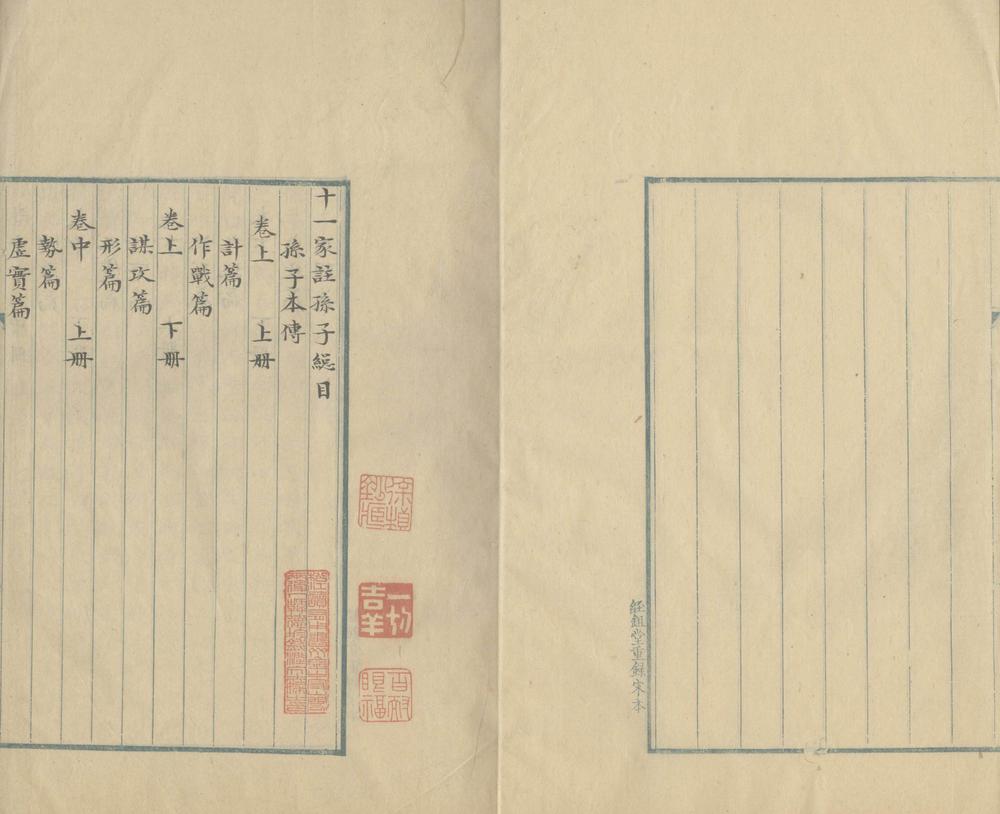 經鉏堂重錄宋本
十一家註孫子緫目
孫子本傳
卷上　上册
計篇
作戰篇
卷上　下册
謀攻篇
形篇
卷中　上册
勢篇
虛實篇
一切
吉羊
百耐
眼福